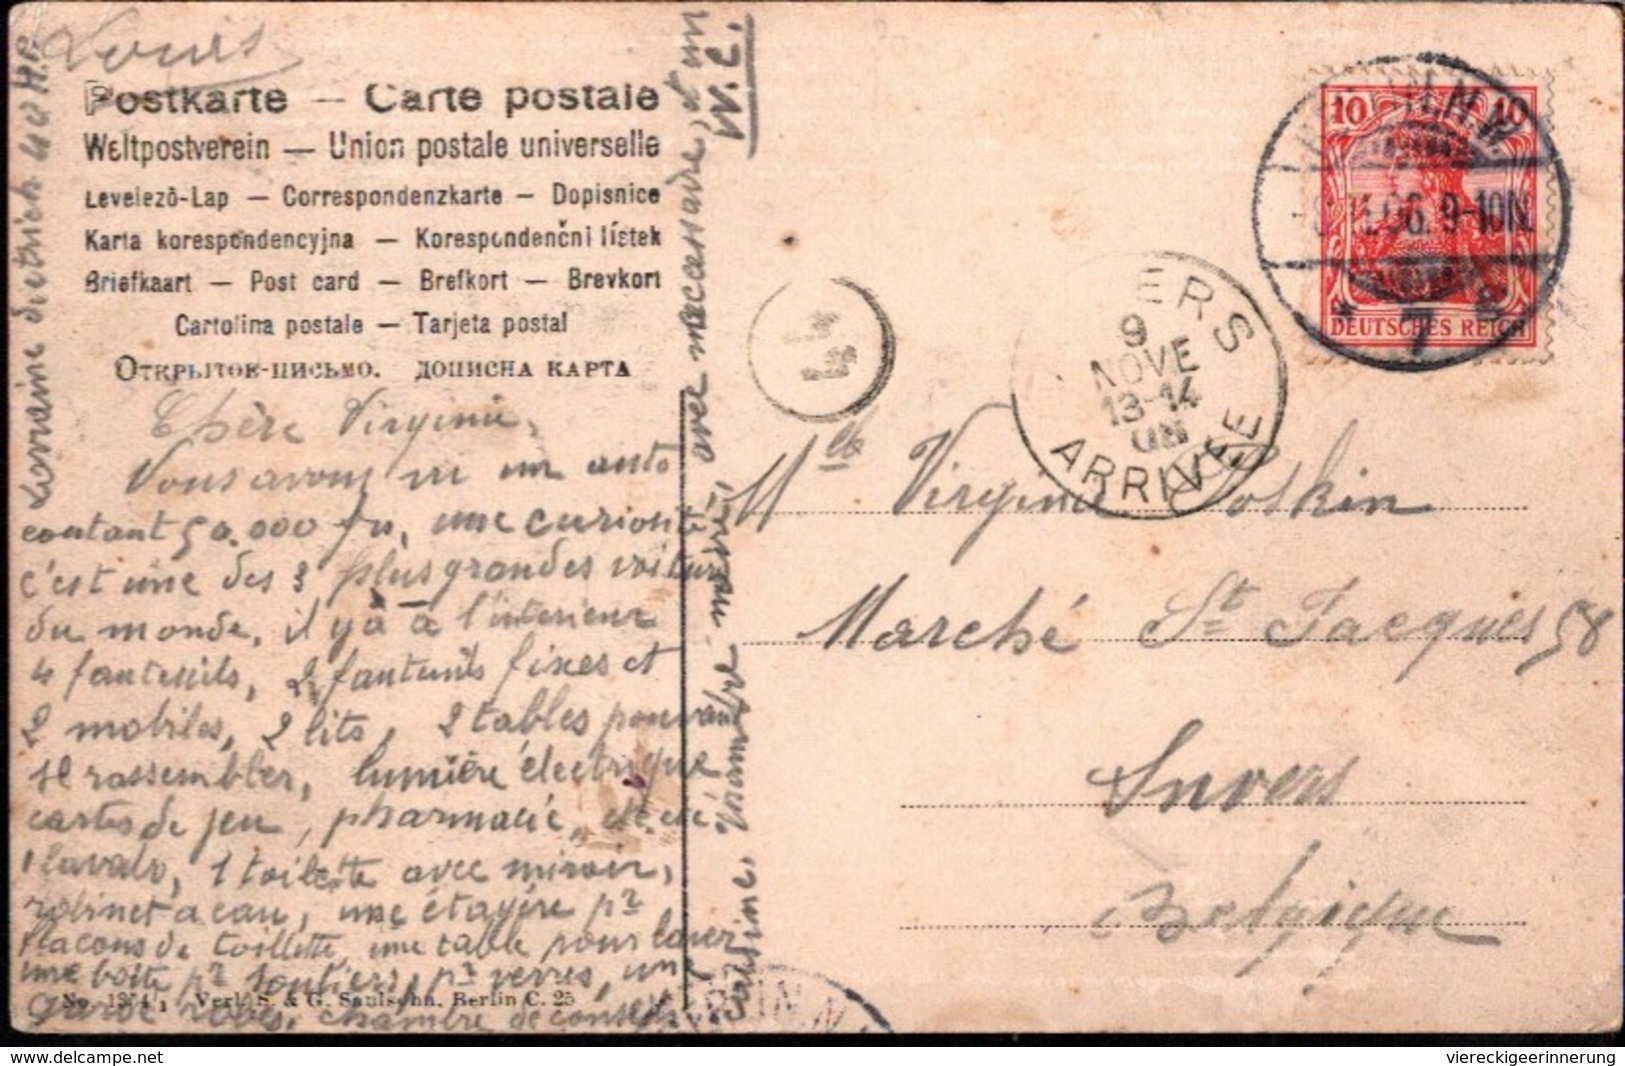 Louis
Postkarte — Carte postale
Weltpostverein — Union postale universelle
Levelező-Lap — Correspondenzkarte — Dopisnice
Karta korespondencyjna — Korespondenční lístek
Briefkaart — Post card — Brefkort — Brevkort
Cartolina postale — Tarjeta postal
Открытое-письмо. дописна карта
Chère Virginie,
Vous avons vu un auto
coutant 50.000 frs, une curiosité
c'est une des 3 plus grandes voitures
du monde, il y à à l'interieur
4 fauteuils, 2 fauteuils fixes et
2 mobiles, 2 lits, 2 tables pouvant
se rassembler, lumière électrique
cartes de jeu, pharmacie, etc. etc
1 lavabo, 1 toilette avec miroir,
robinet a eau, une étagère pr
flacons de toillette, une table pour laver
une boite pr soutiers, pr verres, un
garde robes, chambre de conseil
No. 1374, Verl. S. & G. Saulsohn, Berlin C. 25
cuisine, chambre noire,
avec neccessaire, et un
W.C.
Lorraine dietrich 40 H.P.
10 10
DEUTSCHES REICH
N.W.
11.06. 9-10N.
7
ERS
9
NOVE
13-14
ARRIVEE
Mlle Virginie Soskin
Marché St Jacques 58
Anvers
Belgique
viereckigeerinnerung
www.delcampe.net